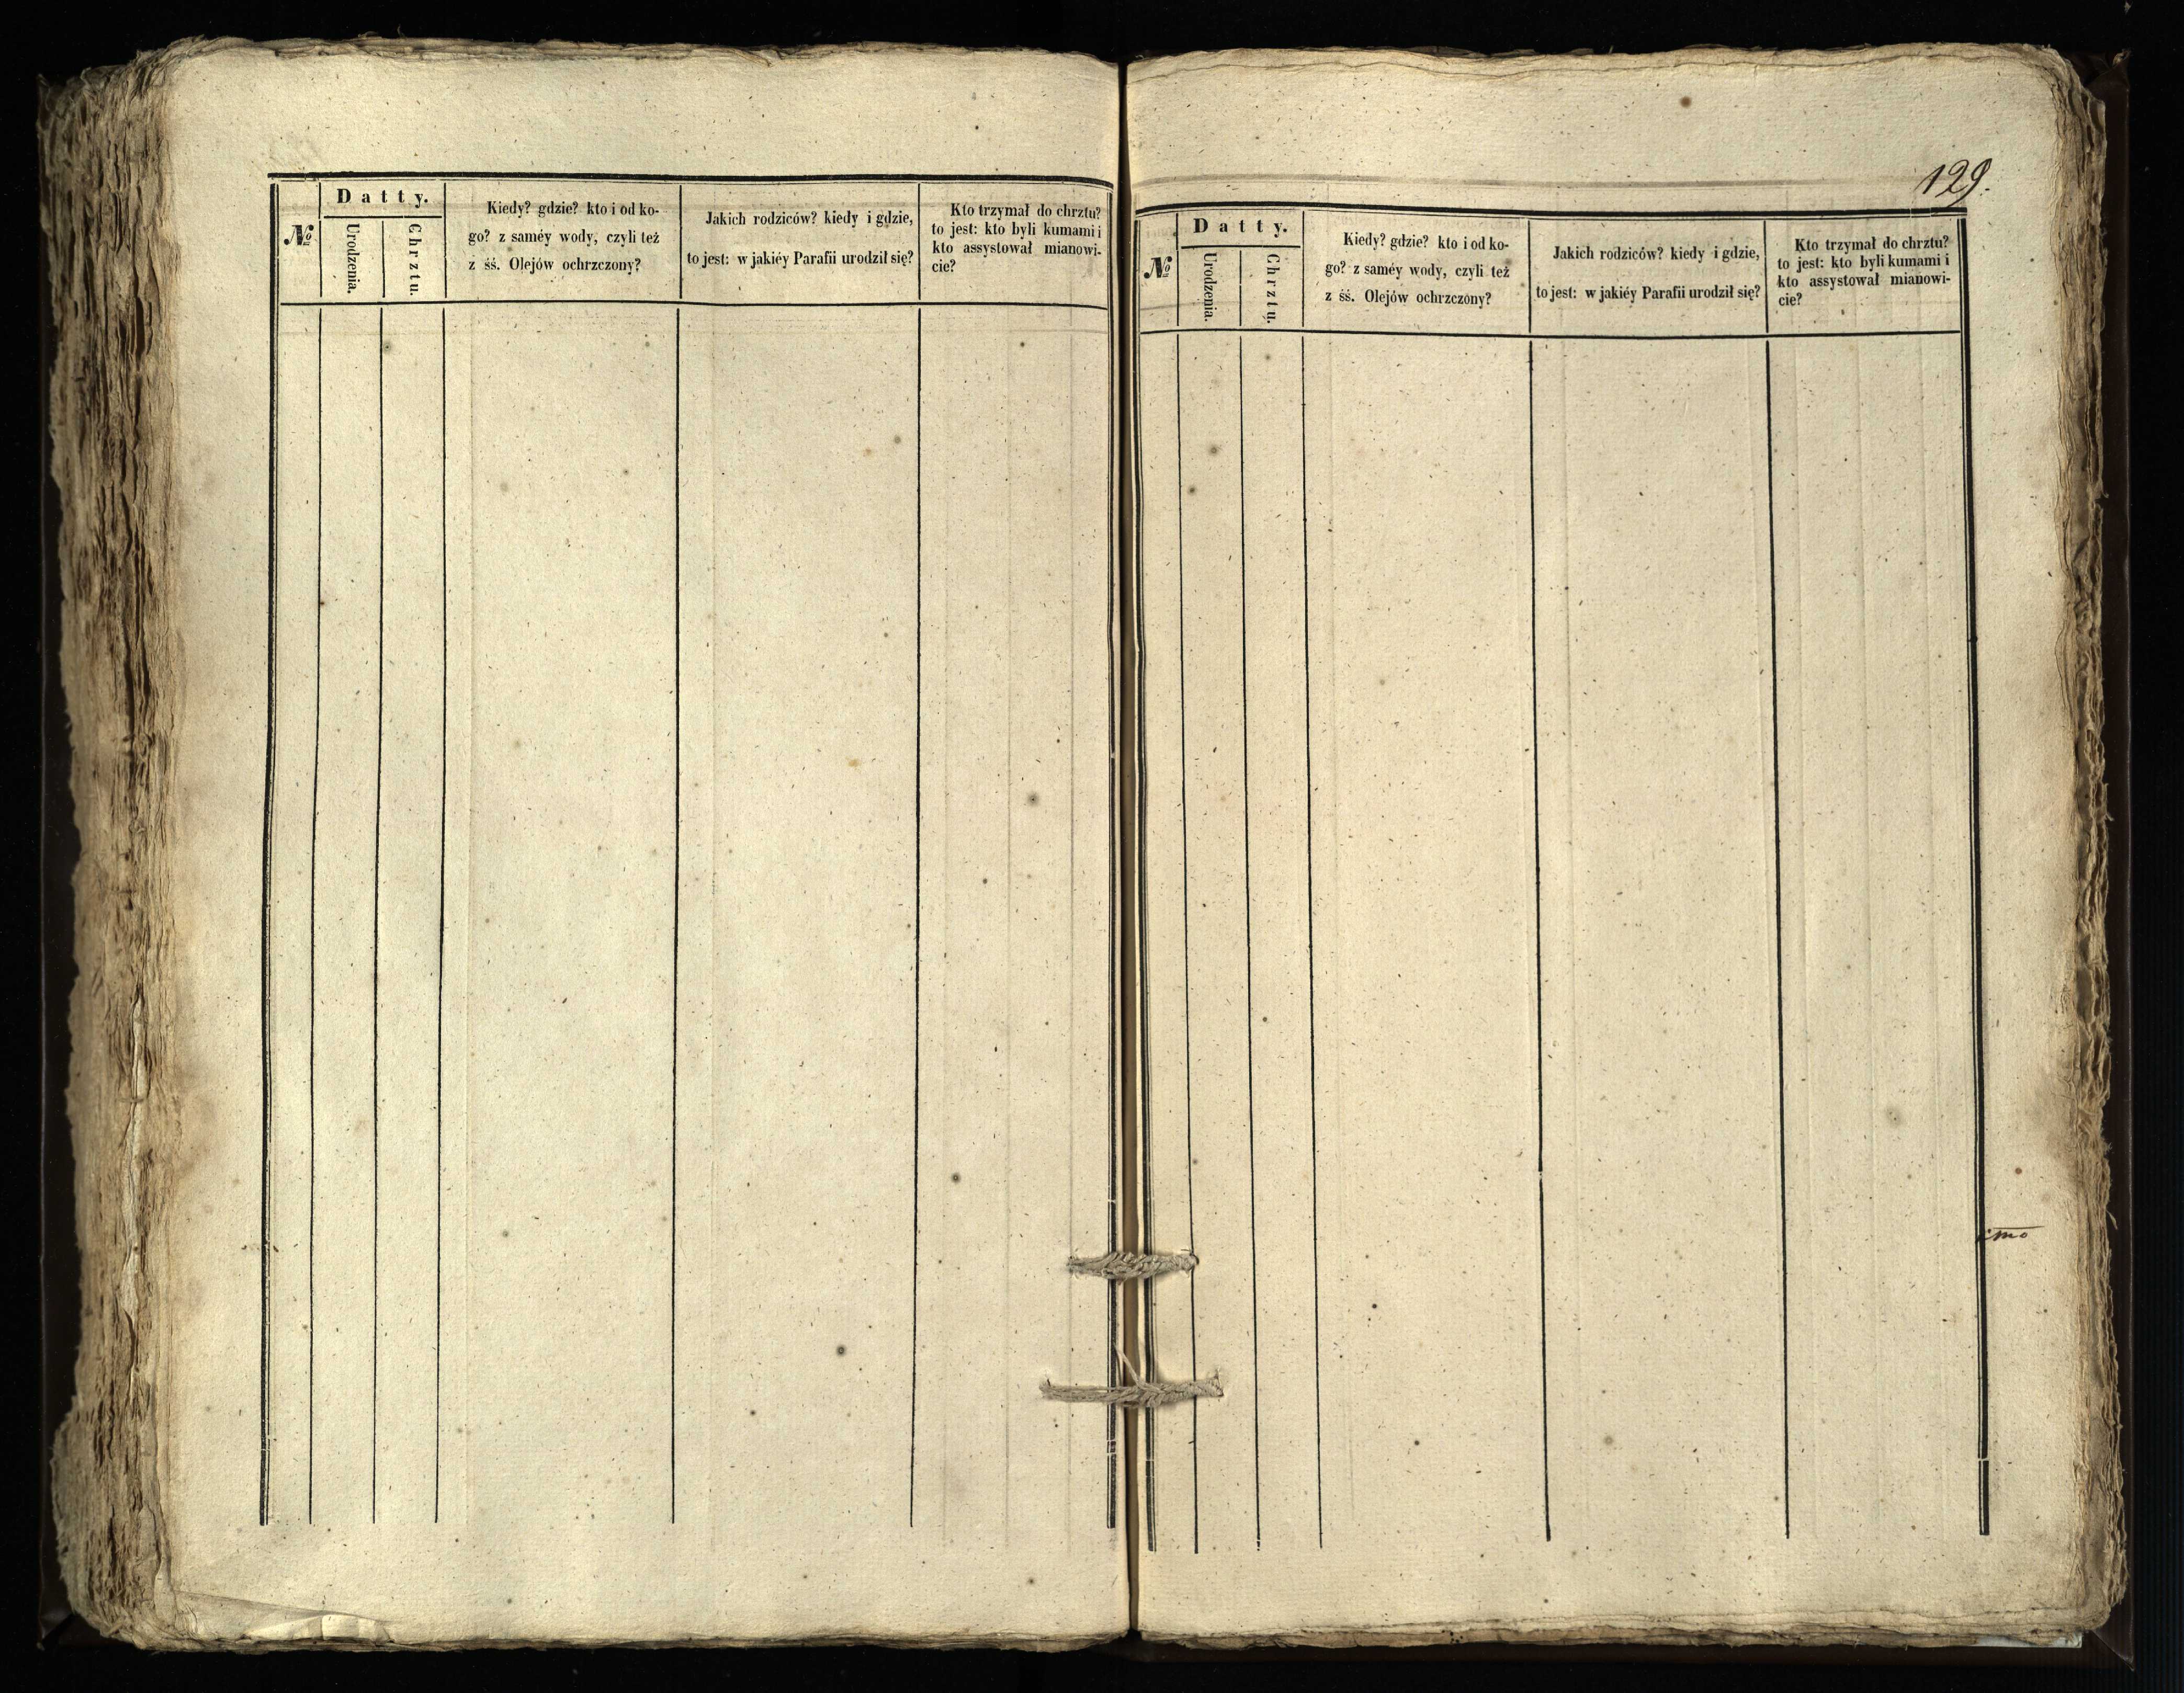 №
Datty.
Urodzenia.
Chrztu.
Kiedy? gdzie? kto i od ko-
go? z saméy wody, czyli też
z śś. Olejów ochrzczony?
Jakich rodziców? kiedy i gdzie,
to jest: w jakiéy Parafii urodził się?
Kto trzymał do chrztu?
to jest: kto byli kumami i
kto assystował mianowi-
cie?
129.
№
Datty.
Urodzenia.
Chrztu.
Kiedy? gdzie? kto i od ko-
go? z saméy wody, czyli też
z śś. Olejów ochrzczony?
Jakich rodziców? kiedy i gdzie,
to jest: w jakiéy Parafii urodził się?
Kto trzymał do chrztu?
to jest: kto byli kumami i
kto assystował mianowi-
cie?